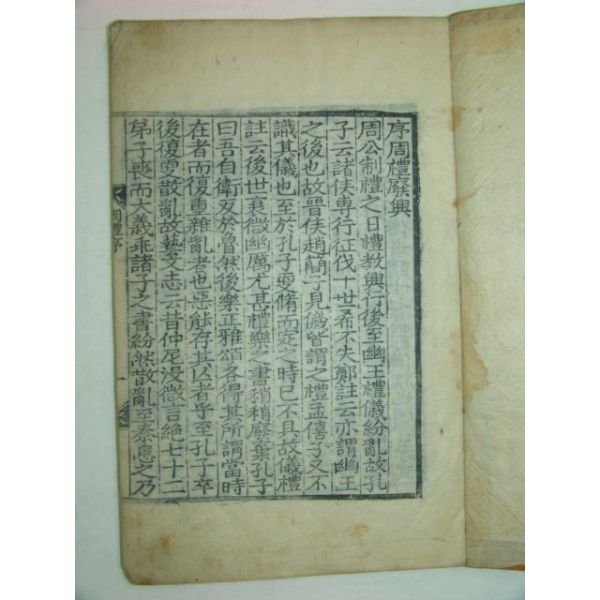 序周禮廢興
周公制禮之日禮教興行後至幽王禮儀紛亂故孔
子云諸侯専行征伐十世希不失鄭註云亦謂幽王
之後也故晉侯趙簡子見儀皆謂之禮孟僖子又不
識其儀也至於孔子更脩而定之時已不具故儀禮
註云後世衰微幽厲尤甚禮樂之書稍稍廢棄孔子
曰吾自衛反於魯然後樂正雅頌各得其所謂當時
在者而復重雜亂者也惡能存其亡者乎至孔子卒
後復更散亂故藝文志云昔仲尼没微言絶七十二
弟子喪而大義乖諸子之書紛然散亂至秦患之乃
周禮序